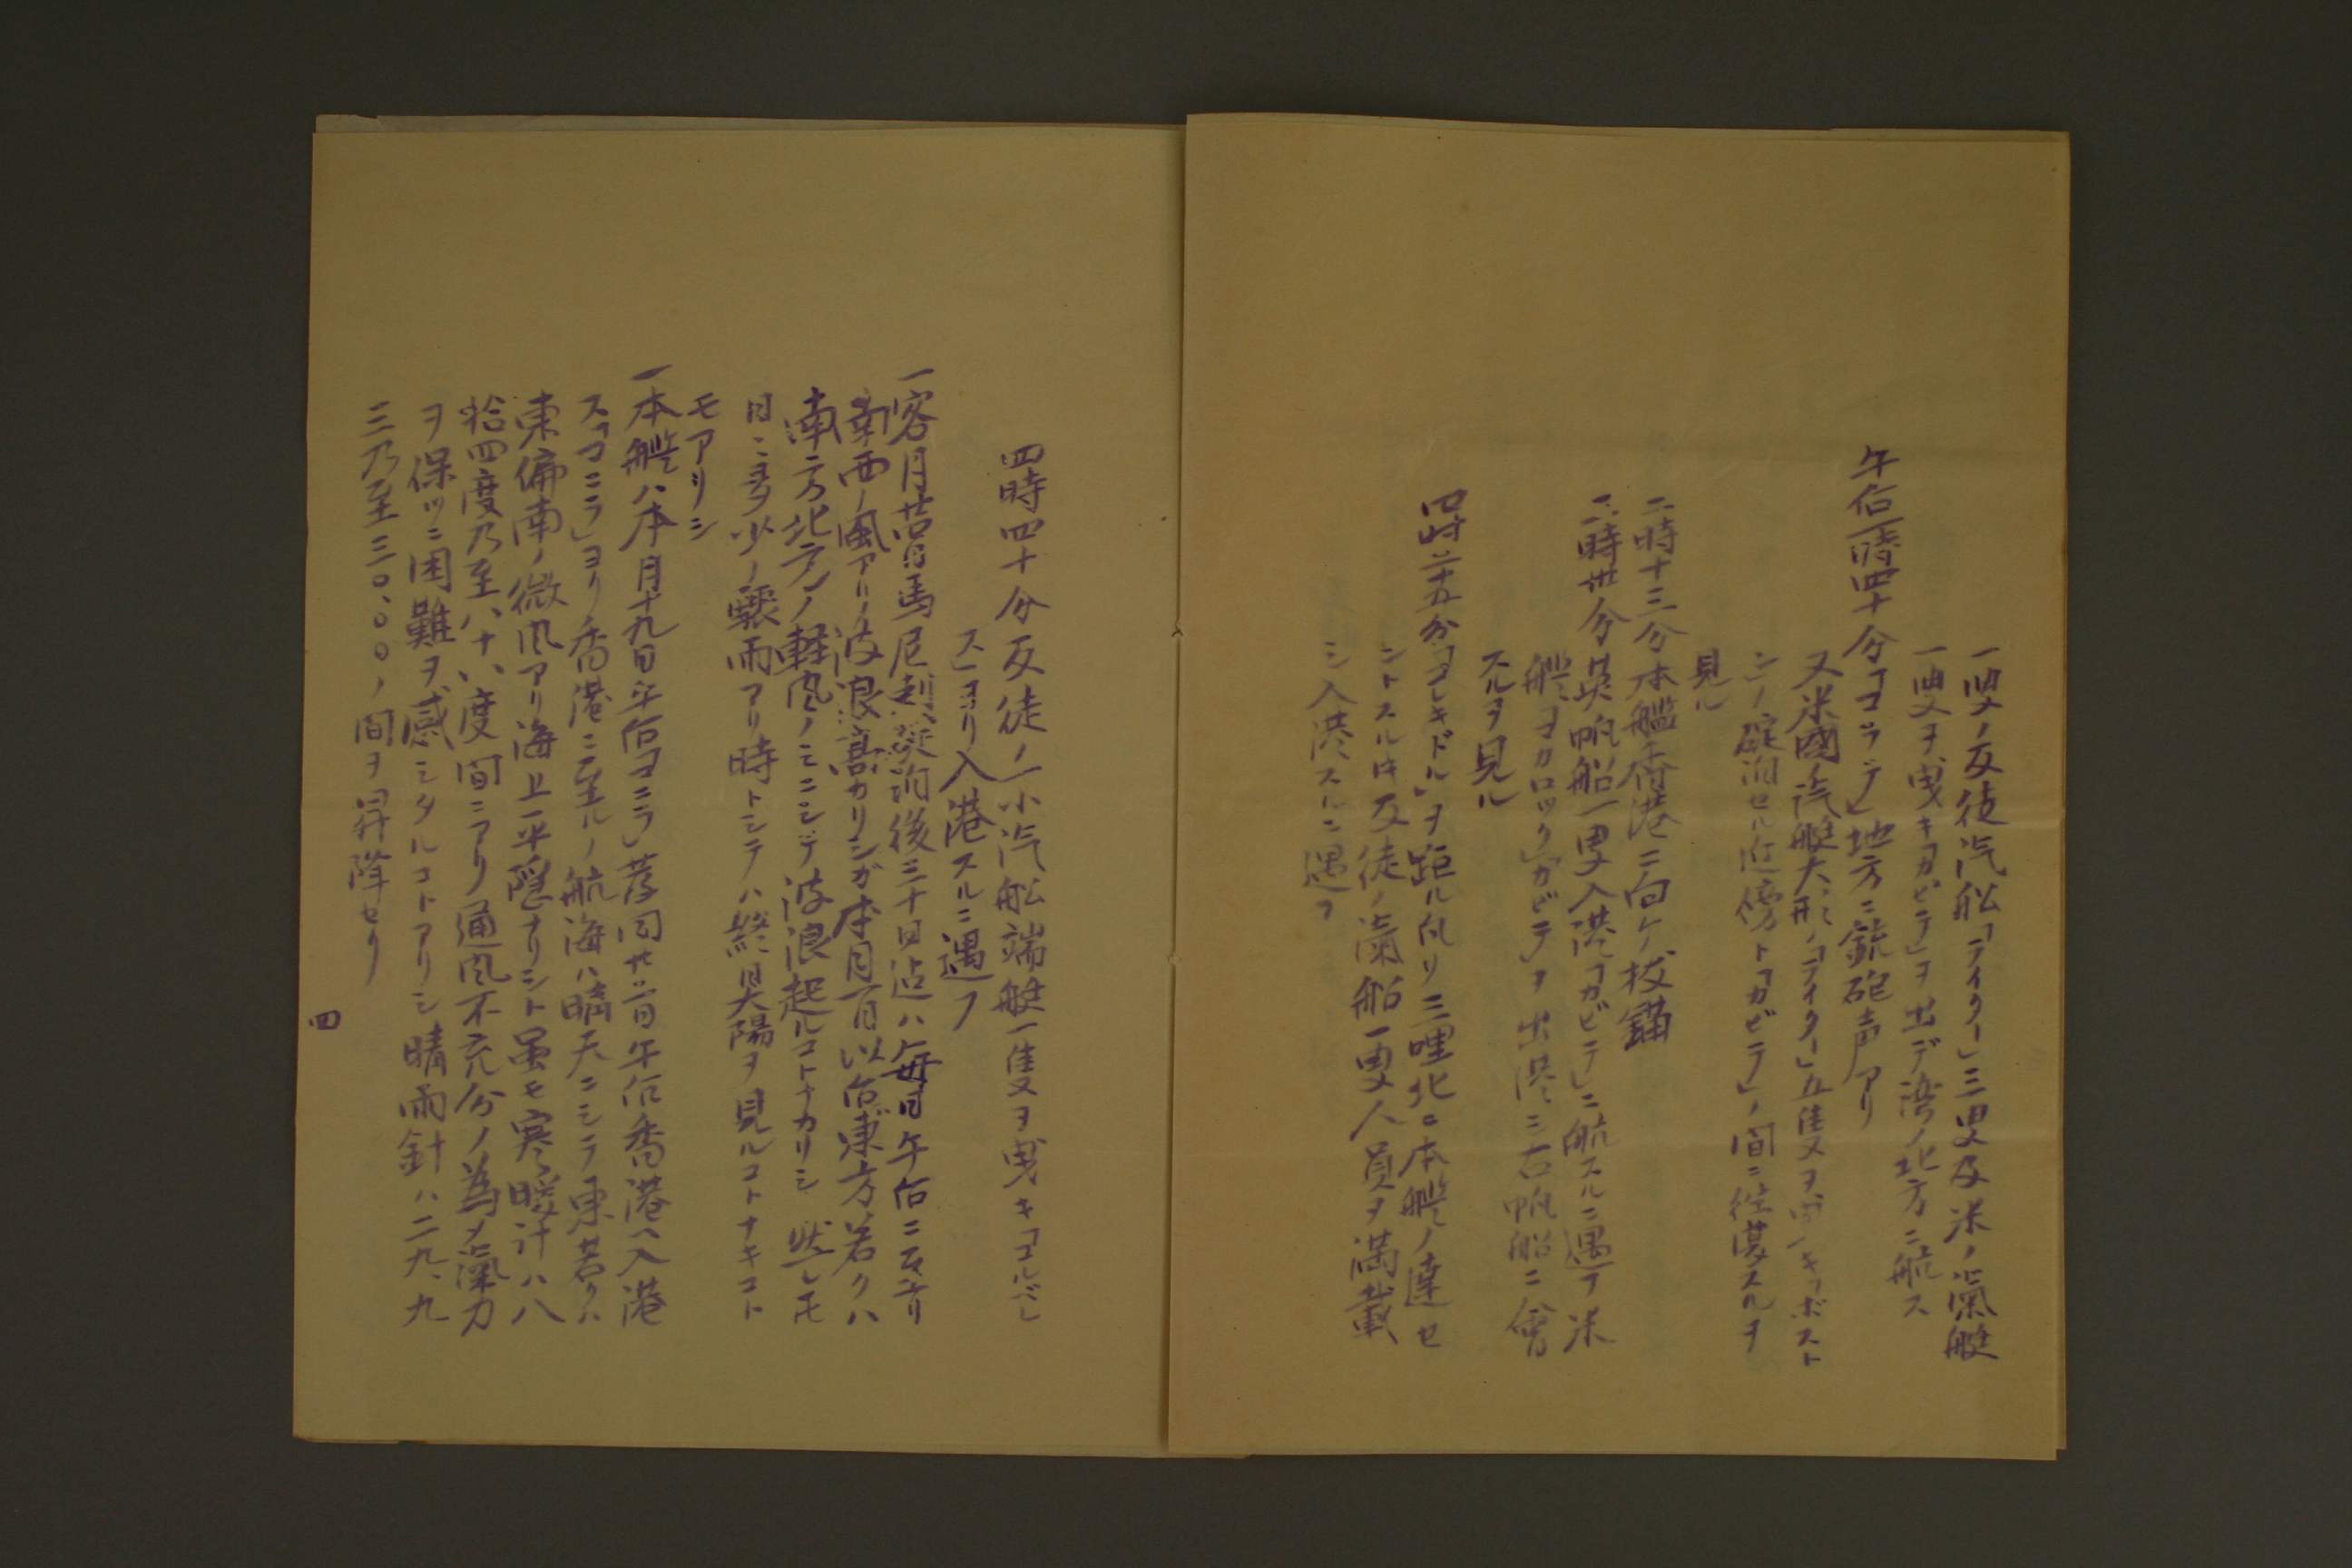 一隻ノ反徒汽舩「ライター」三隻及米ノ滊艇
一隻ヲ曳キ「カビテ」ヲ出デ湾ノ北方ニ航ス
午后一時四十分「コンラデ」地方ニ銃砲声アリ
又米國ノ汽艇大形ノ「ライター」五隻ヲ曳キ「ボスト
ン」ノ碇泊セル近傍ト「カビテ」ノ間ニ往復スルヲ
見ル
二時十三分本艦香港ニ向ケ抜錨
二時卅分英帆船一隻入港「カビテ」ニ航スルニ遇フ米
艦「マカロック」「カビテ」ヲ出港シ右帆船ニ會
スルヲ見ル
四時三十五分「コレキドル」ヲ距ル凡リ三哩北ニ本艦ノ達セ
ントスル時反徒ノ滊船一隻人員ヲ満載
シ入港スルニ遇フ
四時四十分反徒ノ一小汽舩端艇一隻ヲ曳キ「コルベ
ス」ヨリ入港スルニ遇フ
一客月廿四日馬尼剌發泊後三十日迠ハ毎日午后ニ至リ
南西ノ風アリ波浪高カリシガ本月一日以后東方若クハ
南方北方ノ軽風ノミニシテ波浪起ルコトナカリシ 然レモ
日ニ多少ノ驟雨アリ時トシテハ終日太陽ヲ見ルコトナキコト
モアリシ
一本艦ハ本月十九日午后「マニラ」發同廿二日午后香港ヘ入港
ス「マニラ」ヨリ香港ニ至ルノ航海ハ晴天ニシテ東若クハ
東偏南ノ微風アリ海上平隠ナリシト虽モ寒暖計ハ八
拾四度乃至八十八度間ニアリ通風不充分ノ為メ滊力
ヲ保ツニ困難ヲ感シタルコトアリシ 晴雨針ハ二九、九
三乃至三〇、〇〇ノ間ヲ昇降セリ
四